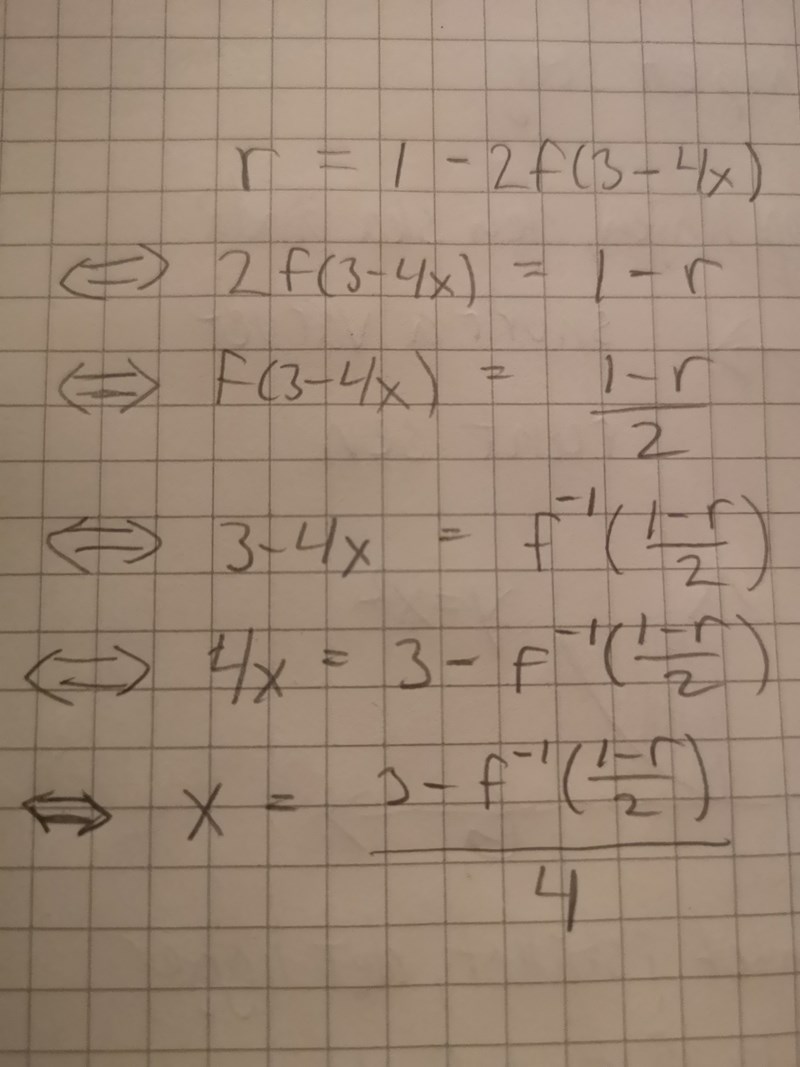 r = 1 - 2f(3-4x)
⇔ 2f(3-4x) = 1-r
⇔ f(3-4x) = \frac{1-r}{2}
⇔ 3-4x = f^{-1}(\frac{1-r}{2})
⇔ 4x = 3 - f^{-1}(\frac{1-r}{2})
⇔ x = \frac{3 - f^{-1}(\frac{1-r}{2})}{4}